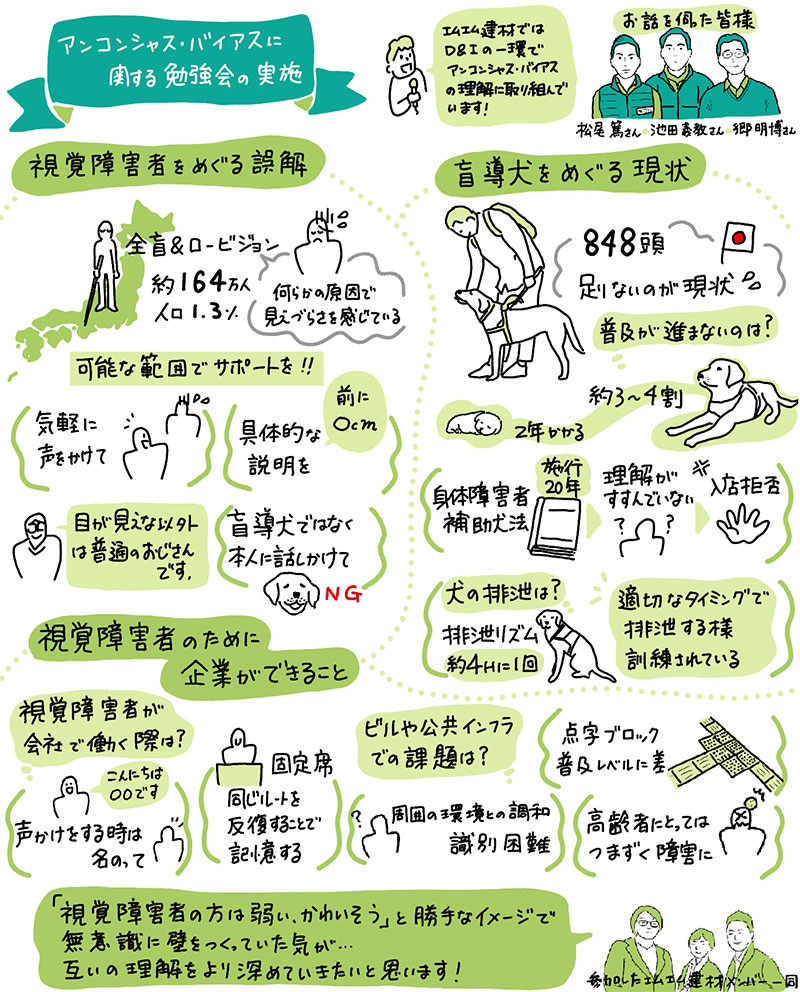 アンコンシャス・バイアスに
関する勉強会の実施
エムエム建材では
D&Iの一環で
アンコンシャス・バイアス
の理解に取り組んで
います!
お話を伺った皆様
松尾 篤さん 池田 義教さん 郷 明博さん
視覚障害者をめぐる誤解
全盲&ロービジョン
約164万人
人口1.3%
何らかの原因で
見えづらさを感じている
可能な範囲でサポートを!!
気軽に
声をかけて
具体的な
説明を
前に
〇cm
目が見えな以外
は普通のおじさん
です.
盲導犬ではなく
本人に話しかけて
NG
盲導犬をめぐる現状
848頭
足りないのが現状
普及が進まないのは?
2年かかる
約3~4割
身体障害者
補助犬法
施行
20年
理解が
すすんでいない
? ?
入店拒否
犬の排泄は?
排泄リズム
約4Hに1回
適切なタイミングで
排泄する様
訓練されている
視覚障害者のために
企業ができること
視覚障害者が
会社で働く際は?
こんにちは
〇〇です
声かけをする時は
名のって
固定席
同じルートを
反復することで
記憶する
ビルや公共インフラ
での課題は?
?
周囲の環境との調和
識別困難
点字ブロック
普及レベルに差
高齢者にとっては
つまずく障害に
「視覚障害者の方は弱い、かわいそう」と勝手なイメージで
無意識に壁をつくっていた気が…
互いの理解をより深めていきたいと思います!
参加したエムエム建材メンバー一同